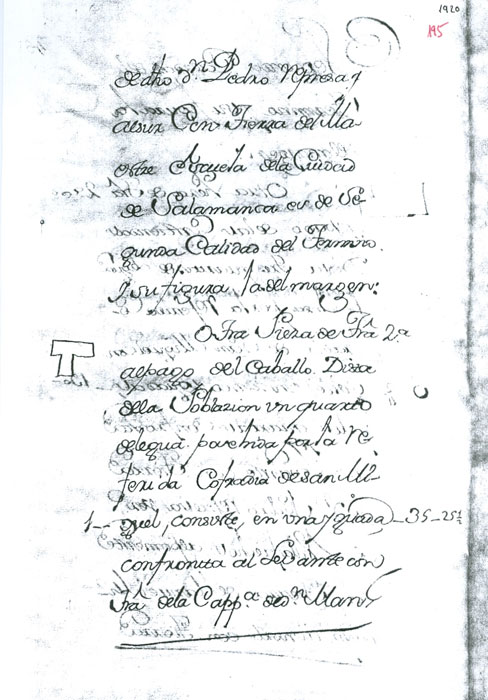 1920
195
de dho Dn. Pedro
al sur Con Tierra del Ma
estre Escuela dela Ciudad
de Salamanca es de Se
gunda Calidad del Termino.
Y su figura la del margen:
Otra Pieza de Tra. 2.a
al pago del Caballo. Dista
dela Poblazion un quarto
de legua, la Re
ferida Cofradia de San Mi
1 guel, consiste, en una Yguada 35-25½
confronta al Levante con
Tra. dela Capp.a de Dn.